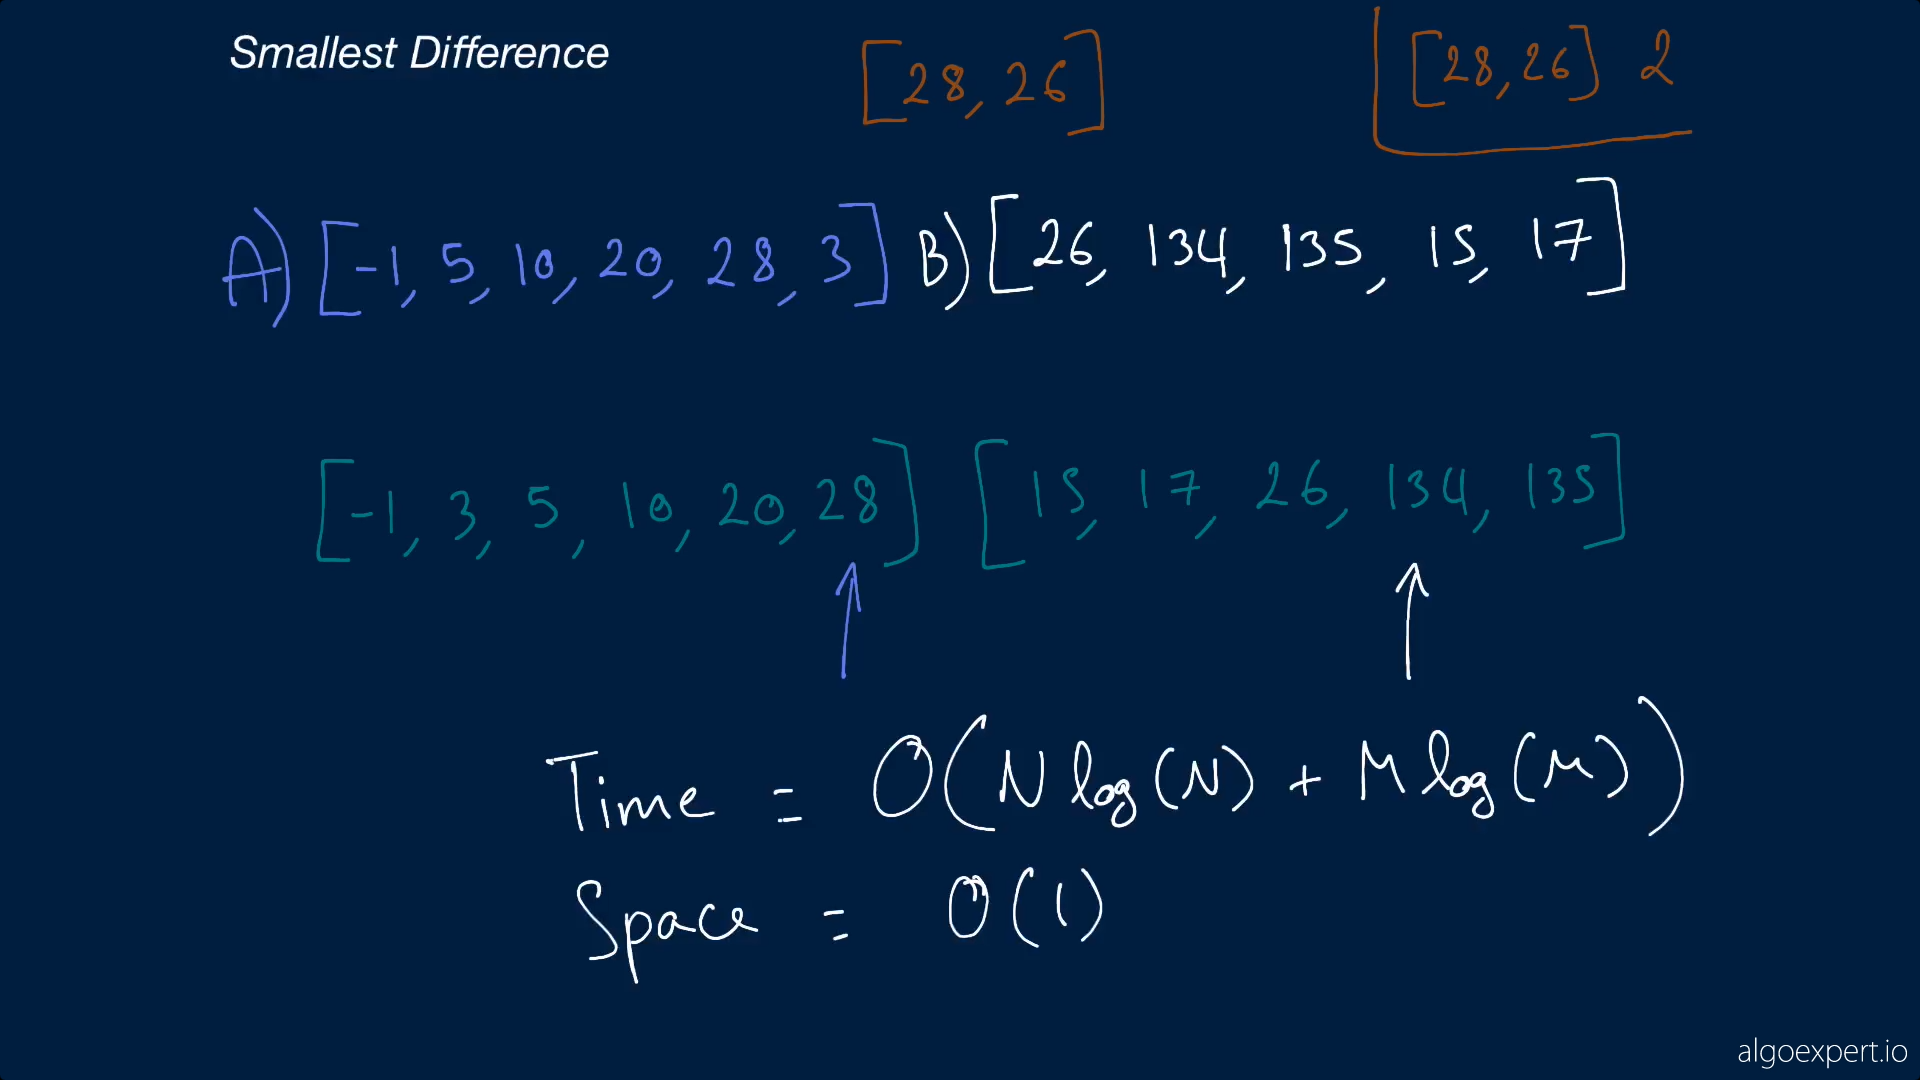 Smallest Difference
[28, 26]
[28, 26] 2
A) [-1, 5, 10, 20, 28, 3] B) [26, 134, 135, 15, 17]
[-1, 3, 5, 10, 20, 28] [15, 17, 26, 134, 135]
Time = O(N log(N) + M log(M))
Space = O(1)
algoexpert.io